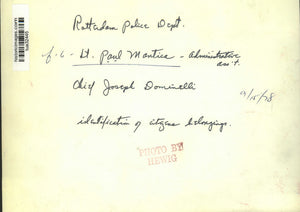 Rotterdam Police Dept.
f.6 - Lt. Paul Mantica - Administrative
ass't.
Chief Joseph Dominelli
10/15/78
identification of citizens belongings.
PHOTO BY
HEWIG